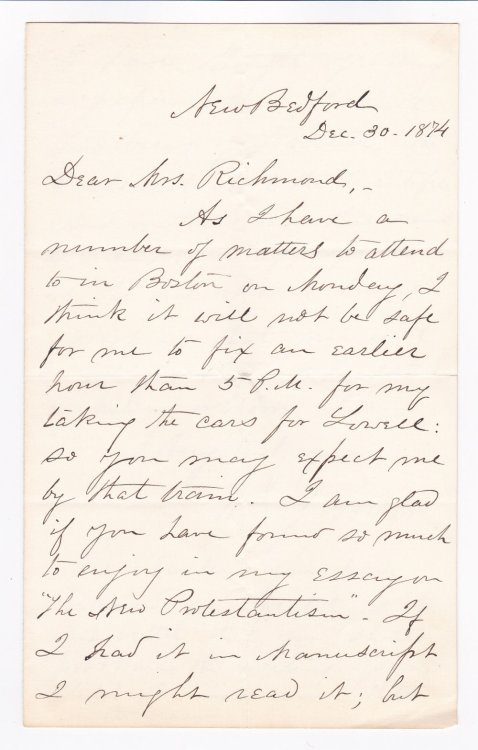 New Bedford
Dec. 30. 1874
Dear Mrs. Richmond,-
As I have a
number of matters to attend
to in Boston on Monday, I
think it will not be safe
for me to fix an earlier
hour than 5 P.M. for my
taking the cars for Lowell:
so you may expect me
by that train. I am glad
if you have found so much
to enjoy in my essay on
"The New Protestantism". If
I had it in Manuscript
I might read it; but